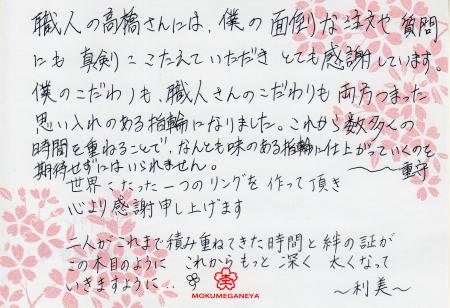 職人の高橋さんには、僕の面倒な注文や質問
にも真剣にこたえていただきとても感謝しています。
僕のこだわりも、職人さんのこだわりも両方つまった
思い入れのある指輪になりました。これから数多くの
時間を重ねることで、なんとも味のある指輪に仕上がっていくのを
期待せずにはいられません。 〜重守
世界にたった一つのリングを作って頂き
心より感謝申し上げます
二人がこれまで積み重ねてきた時間と絆の証が
この木目のように これからもっと深く 太くなって
いきますように‥
〜利美〜
MOKUMEGANEYA